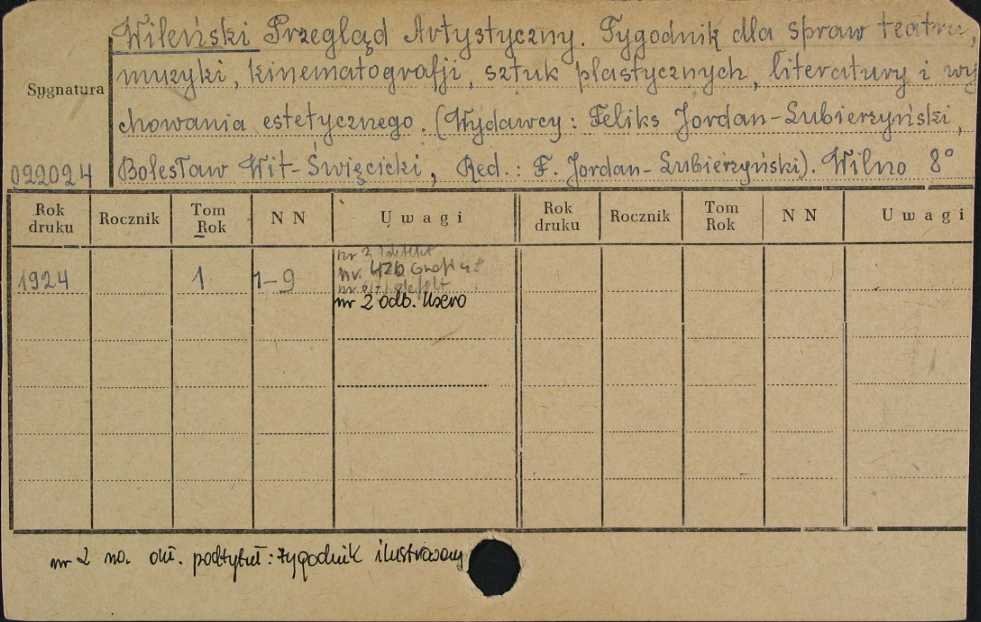 Wileński Przegląd Artystyczny. Tygodnik dla spraw teatru,
muzyki, kinematografji, sztuk plastycznych, literatury i wy
Sygnatura
chowania estetycznego. (Wydawcy: Feliks Jordan-Lubierzyński,
022024 Bolesław Wit-Święcicki, Red.: F. Jordan-Lubierzyński). Wilno 8°
Rok druku Rocznik Tom Rok NN Uwagi Rok druku Rocznik Tom Rok NN Uwagi
nr 2
1924 1 1-9 nr.
nr
nr 2 odb. ksero
nr 2 na. okł. podtytuł: tygodnik ilustrowany